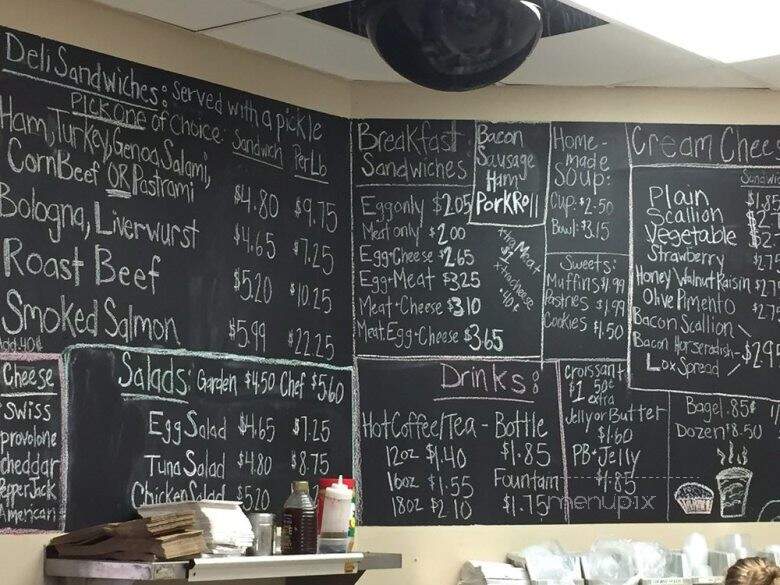 Deli Sandwiches: served with a pickle
PICK ONE of choice: Sandwich Per Lb
Ham, Turkey, Genoa Salami,
Corn Beef OR Pastrami $4.80 $9.75
Bologna, Liverwurst $4.65 $7.25
Roast Beef $5.20 $10.25
Smoked Salmon $5.99 $22.25
Add .40¢
Cheese
Swiss
provolone
cheddar
PepperJack
American
Salads: Garden $4.50 Chef $5.60
Egg Salad $4.65 $7.25
Tuna Salad $4.80 $8.75
Chicken Salad $5.20
Breakfast
Sandwiches
Bacon
Sausage
Ham
Pork Roll
Egg only $2.05
Meat only $2.00
Egg+Cheese $2.65
Egg+Meat $3.25
Meat+Cheese $3.10
Meat.Egg+Cheese $3.65
xtra Meat
$1
xtra cheese
.40¢
Home-
made
Soup:
Cup: $2.50
Bowl: $3.15
Sweets:
Muffins $1.99
Pastries $1.99
Cookies $1.50
Cream Chee
Sandwic
Plain $1.85
Scallion
Vegetable
Strawberry
Honey Walnut Raisin
Olive Pimento
Bacon Scallion
Bacon Horseradish - $2.95
Lox Spread
Drinks:
Hot Coffee/Tea - Bottle
12oz $1.40 $1.85
16oz $1.55 Fountain
18oz $2.10 $1.75
Croissant
$1 50¢
extra
Jelly or Butter
$1.60
PB+Jelly
$1.85
Bagel .85¢
Dozen $8.50
menupix